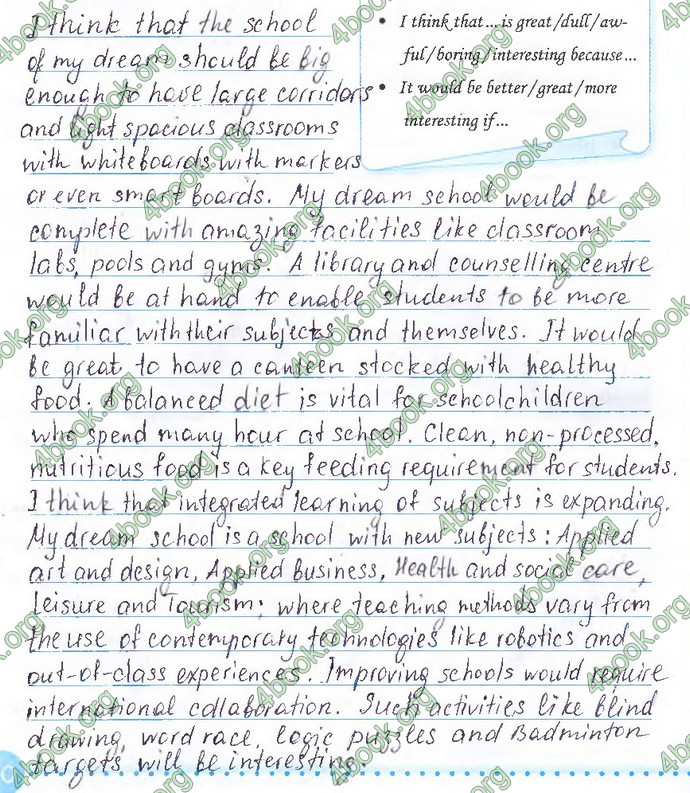 I think that the school
of my dream should be big
enough to have large corridors
and light spacious classrooms
with whiteboards with markers
or even smart boards. My dream school would be
complete with amazing facilities like classroom
labs, pools and gyms. A library and counselling centre
would be at hand to enable students to be more
familiar with their subjects and themselves. It would
be great to have a canteen stocked with healthy
food. A balanced diet is vital for schoolchildren
who spend many hour at school. Clean, non-processed,
nutritious food is a key feeding requirement for students.
I think that integrated learning of subjects is expanding.
My dream school is a school with new subjects: Applied
art and design, Applied Business, Health and social care,
Leisure and Tourism; where teaching methods vary from
the use of contemporary technologies like robotics and
out-of-class experiences. Improving schools would require
international collaboration. Such activities like Blind
drawing, word race, logic puzzles and Badminton
targets will be interesting.
• I think that ... is great / dull / aw-
ful / boring / interesting because ...
• It would be better / great / more
interesting if ...
4book.org